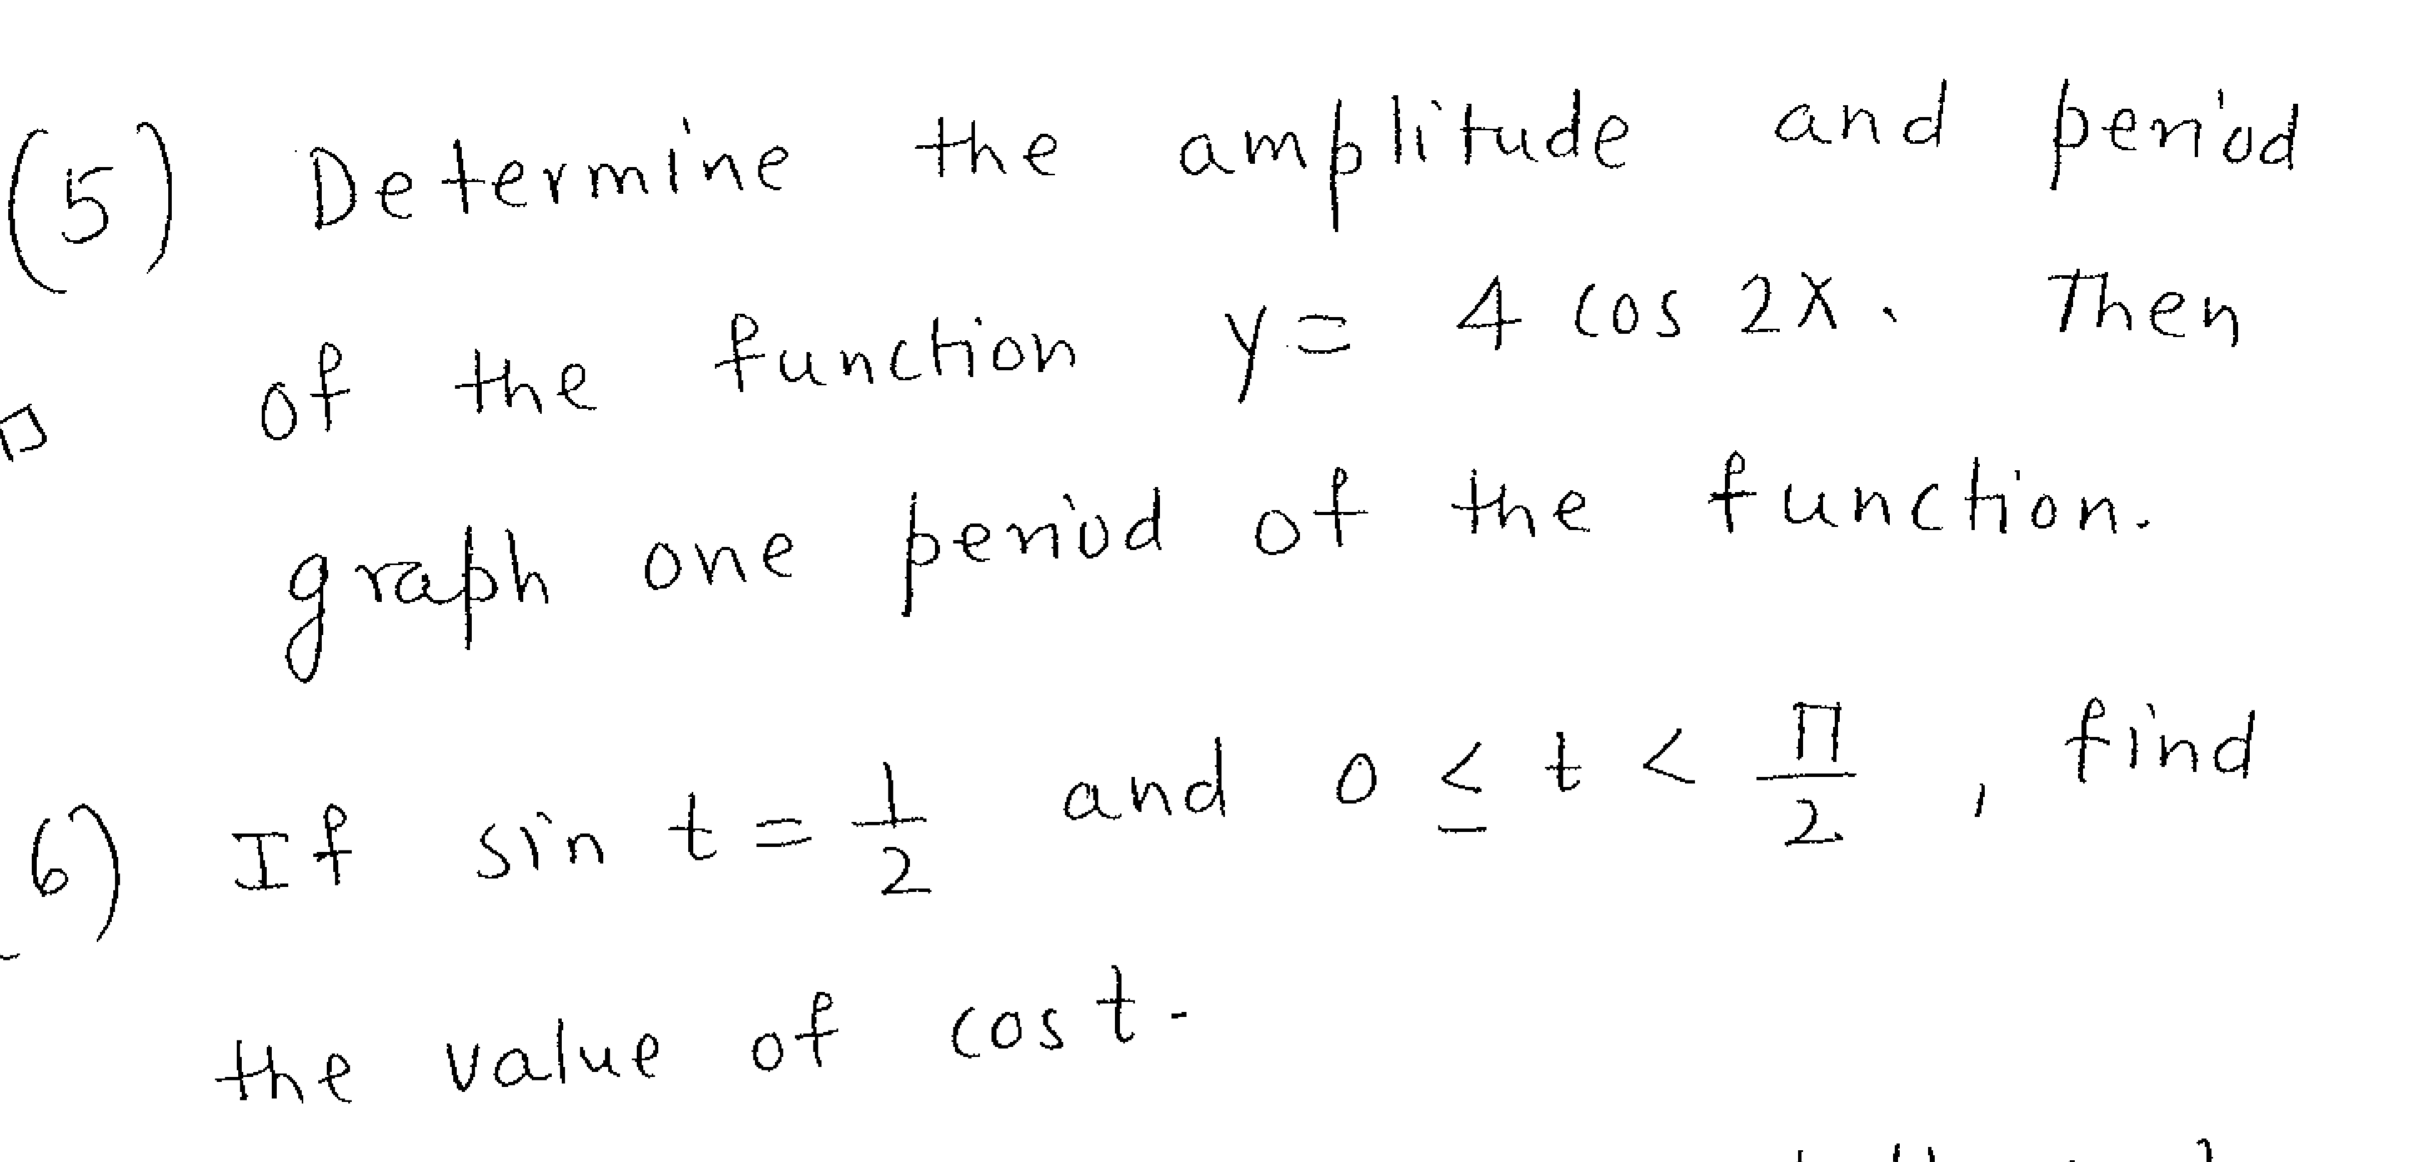 (5) Determine the amplitude and period
of the function y = 4 cos 2x. Then
graph one period of the function.
6) If sin t = 1/2 and 0 ≤ t < π/2, find
the value of cos t.